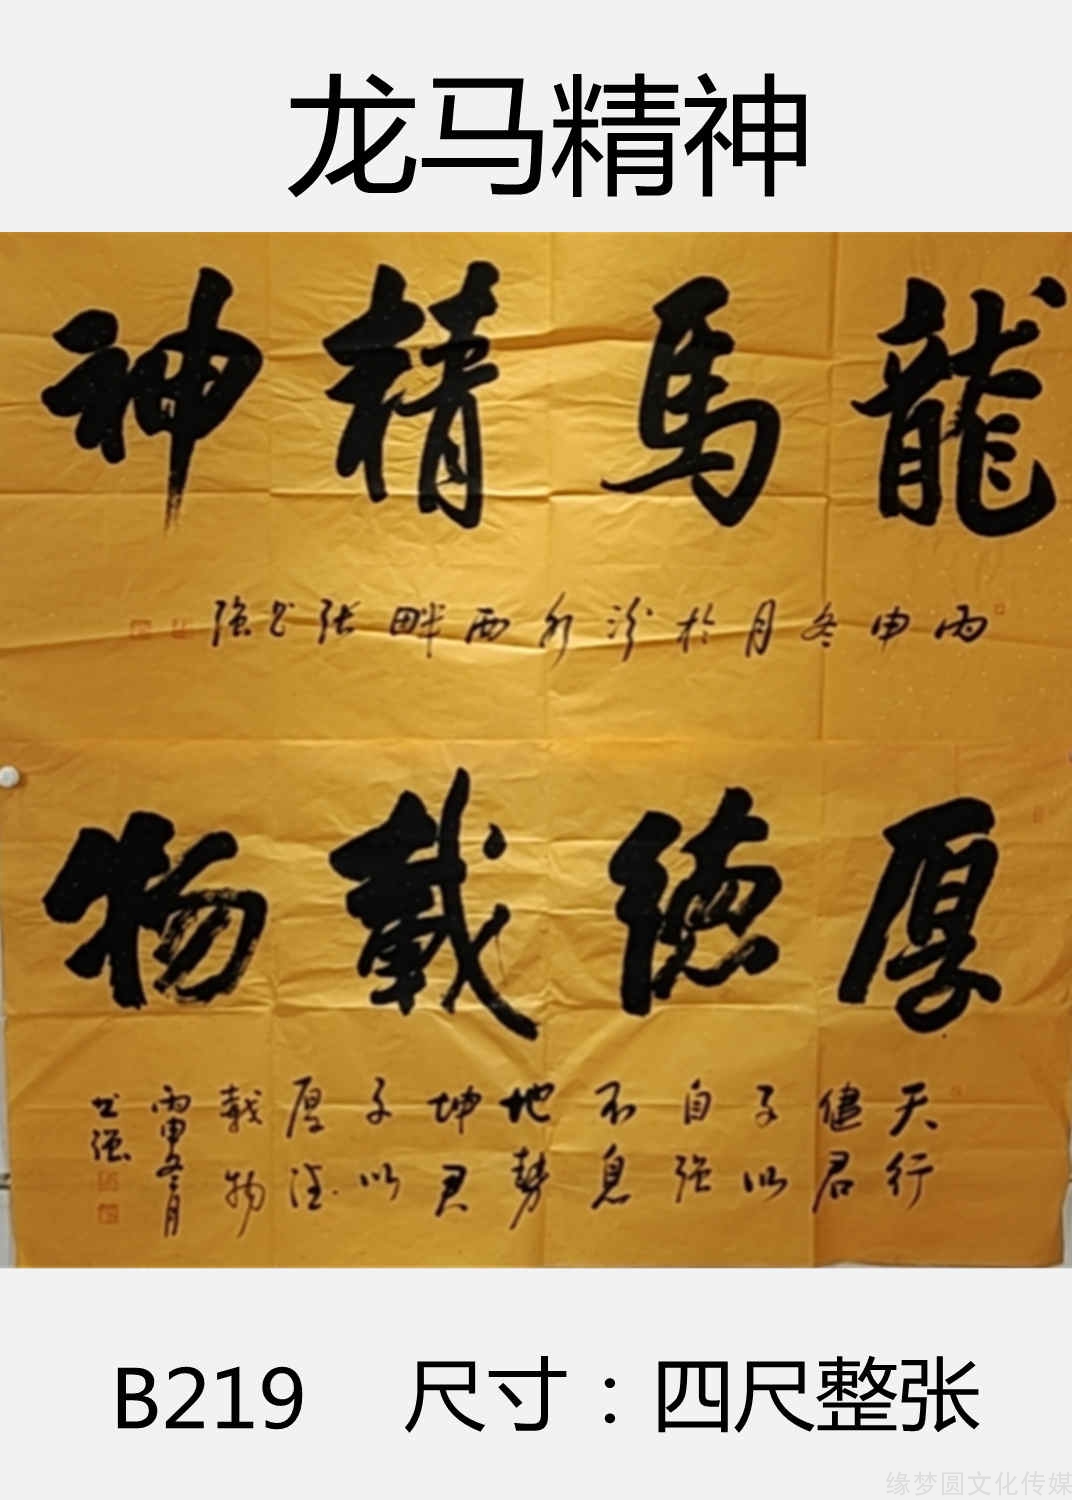 龙马精神
龍馬精神
丙申冬月於汾水西畔張書強
厚德載物
天行
健君
子以
自强
不息
地势
坤君
子以
厚德
載物
丙申冬月
书强
B219 尺寸：四尺整张
缘梦圆文化传媒